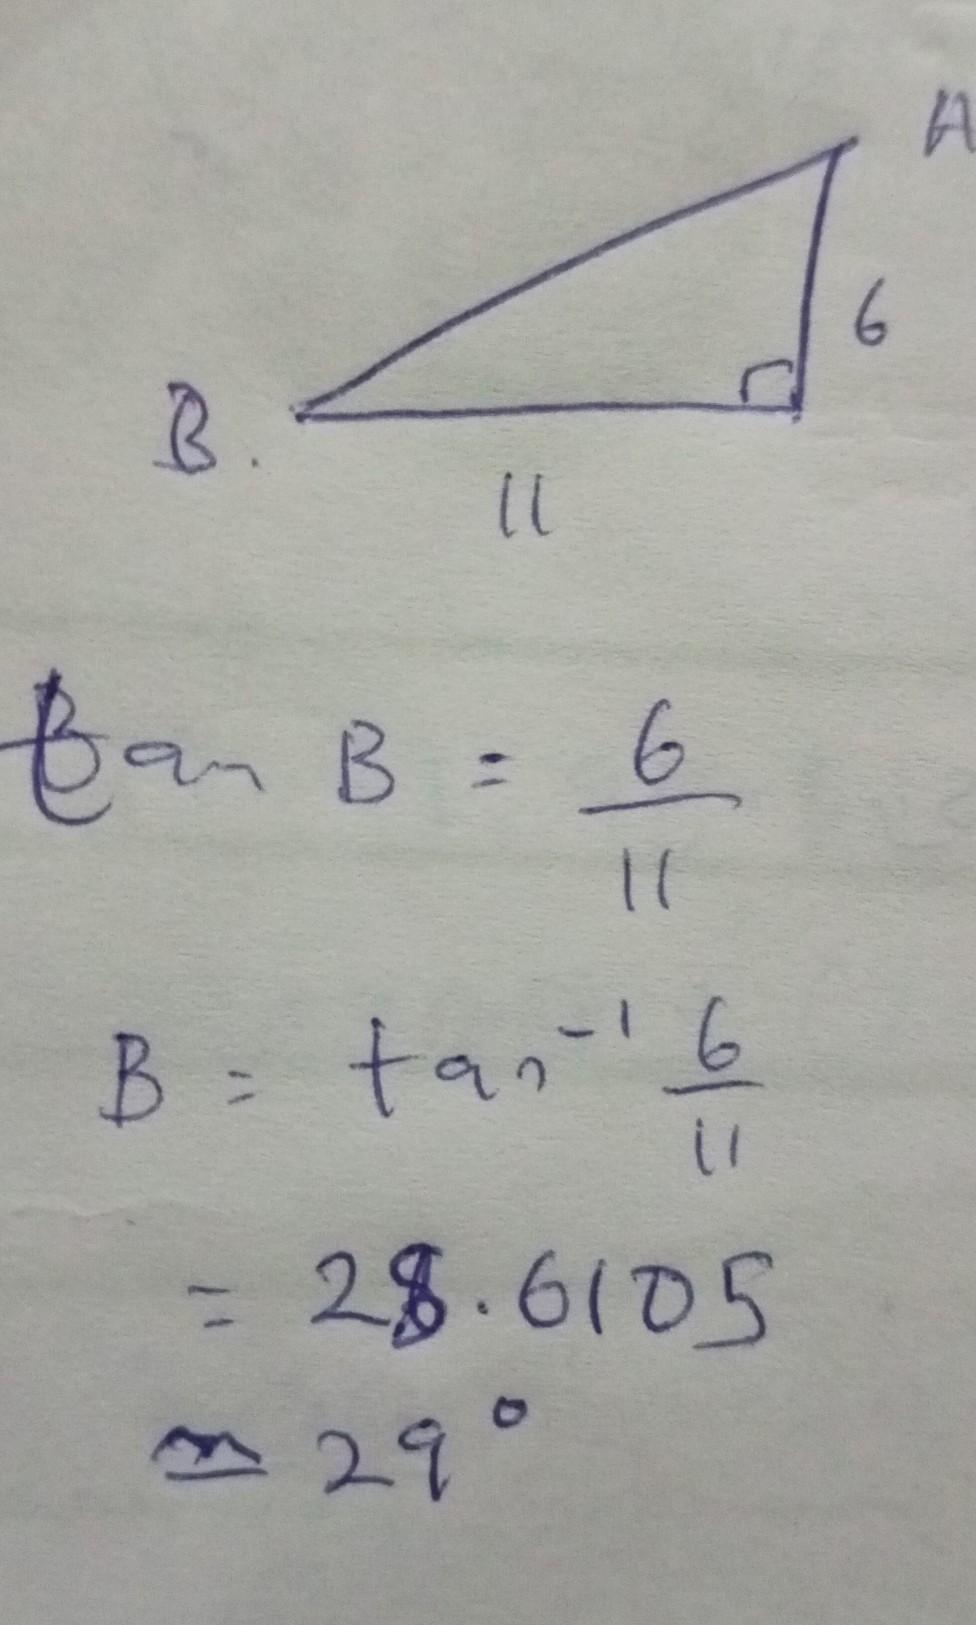 A
6
B.
11
tan B = 6/11
B = tan⁻¹ 6/11
= 28.6105
≃ 29°